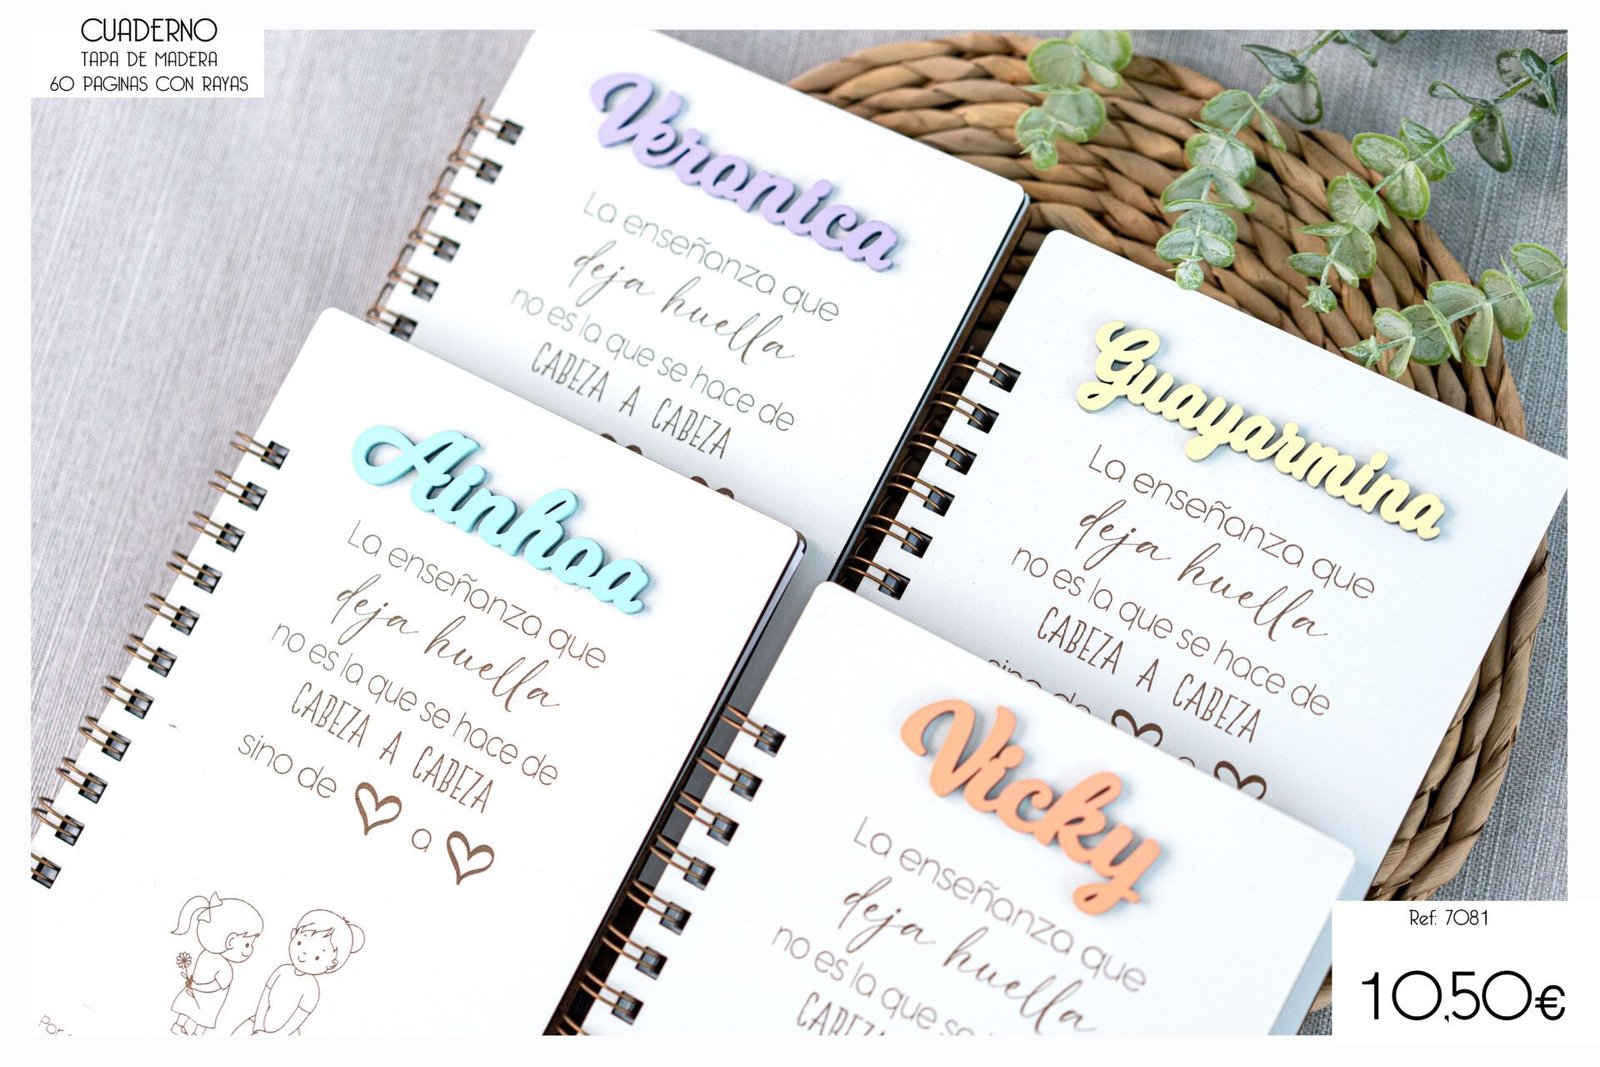 CUADERNO
TAPA DE MADERA
60 PAGINAS CON RAYAS
Veronica
La enseñanza que
deja huella
no es la que se hace de
CABEZA A CABEZA
Guayarmina
La enseñanza que
deja huella
no es la que se hace de
CABEZA A CABEZA
sino de
a
Ainhoa
La enseñanza que
deja huella
no es la que se hace de
CABEZA A CABEZA
sino de
a
Por
Vicky
La enseñanza que
deja huella
no es la que se hace de
Ref: 7081
10,50€